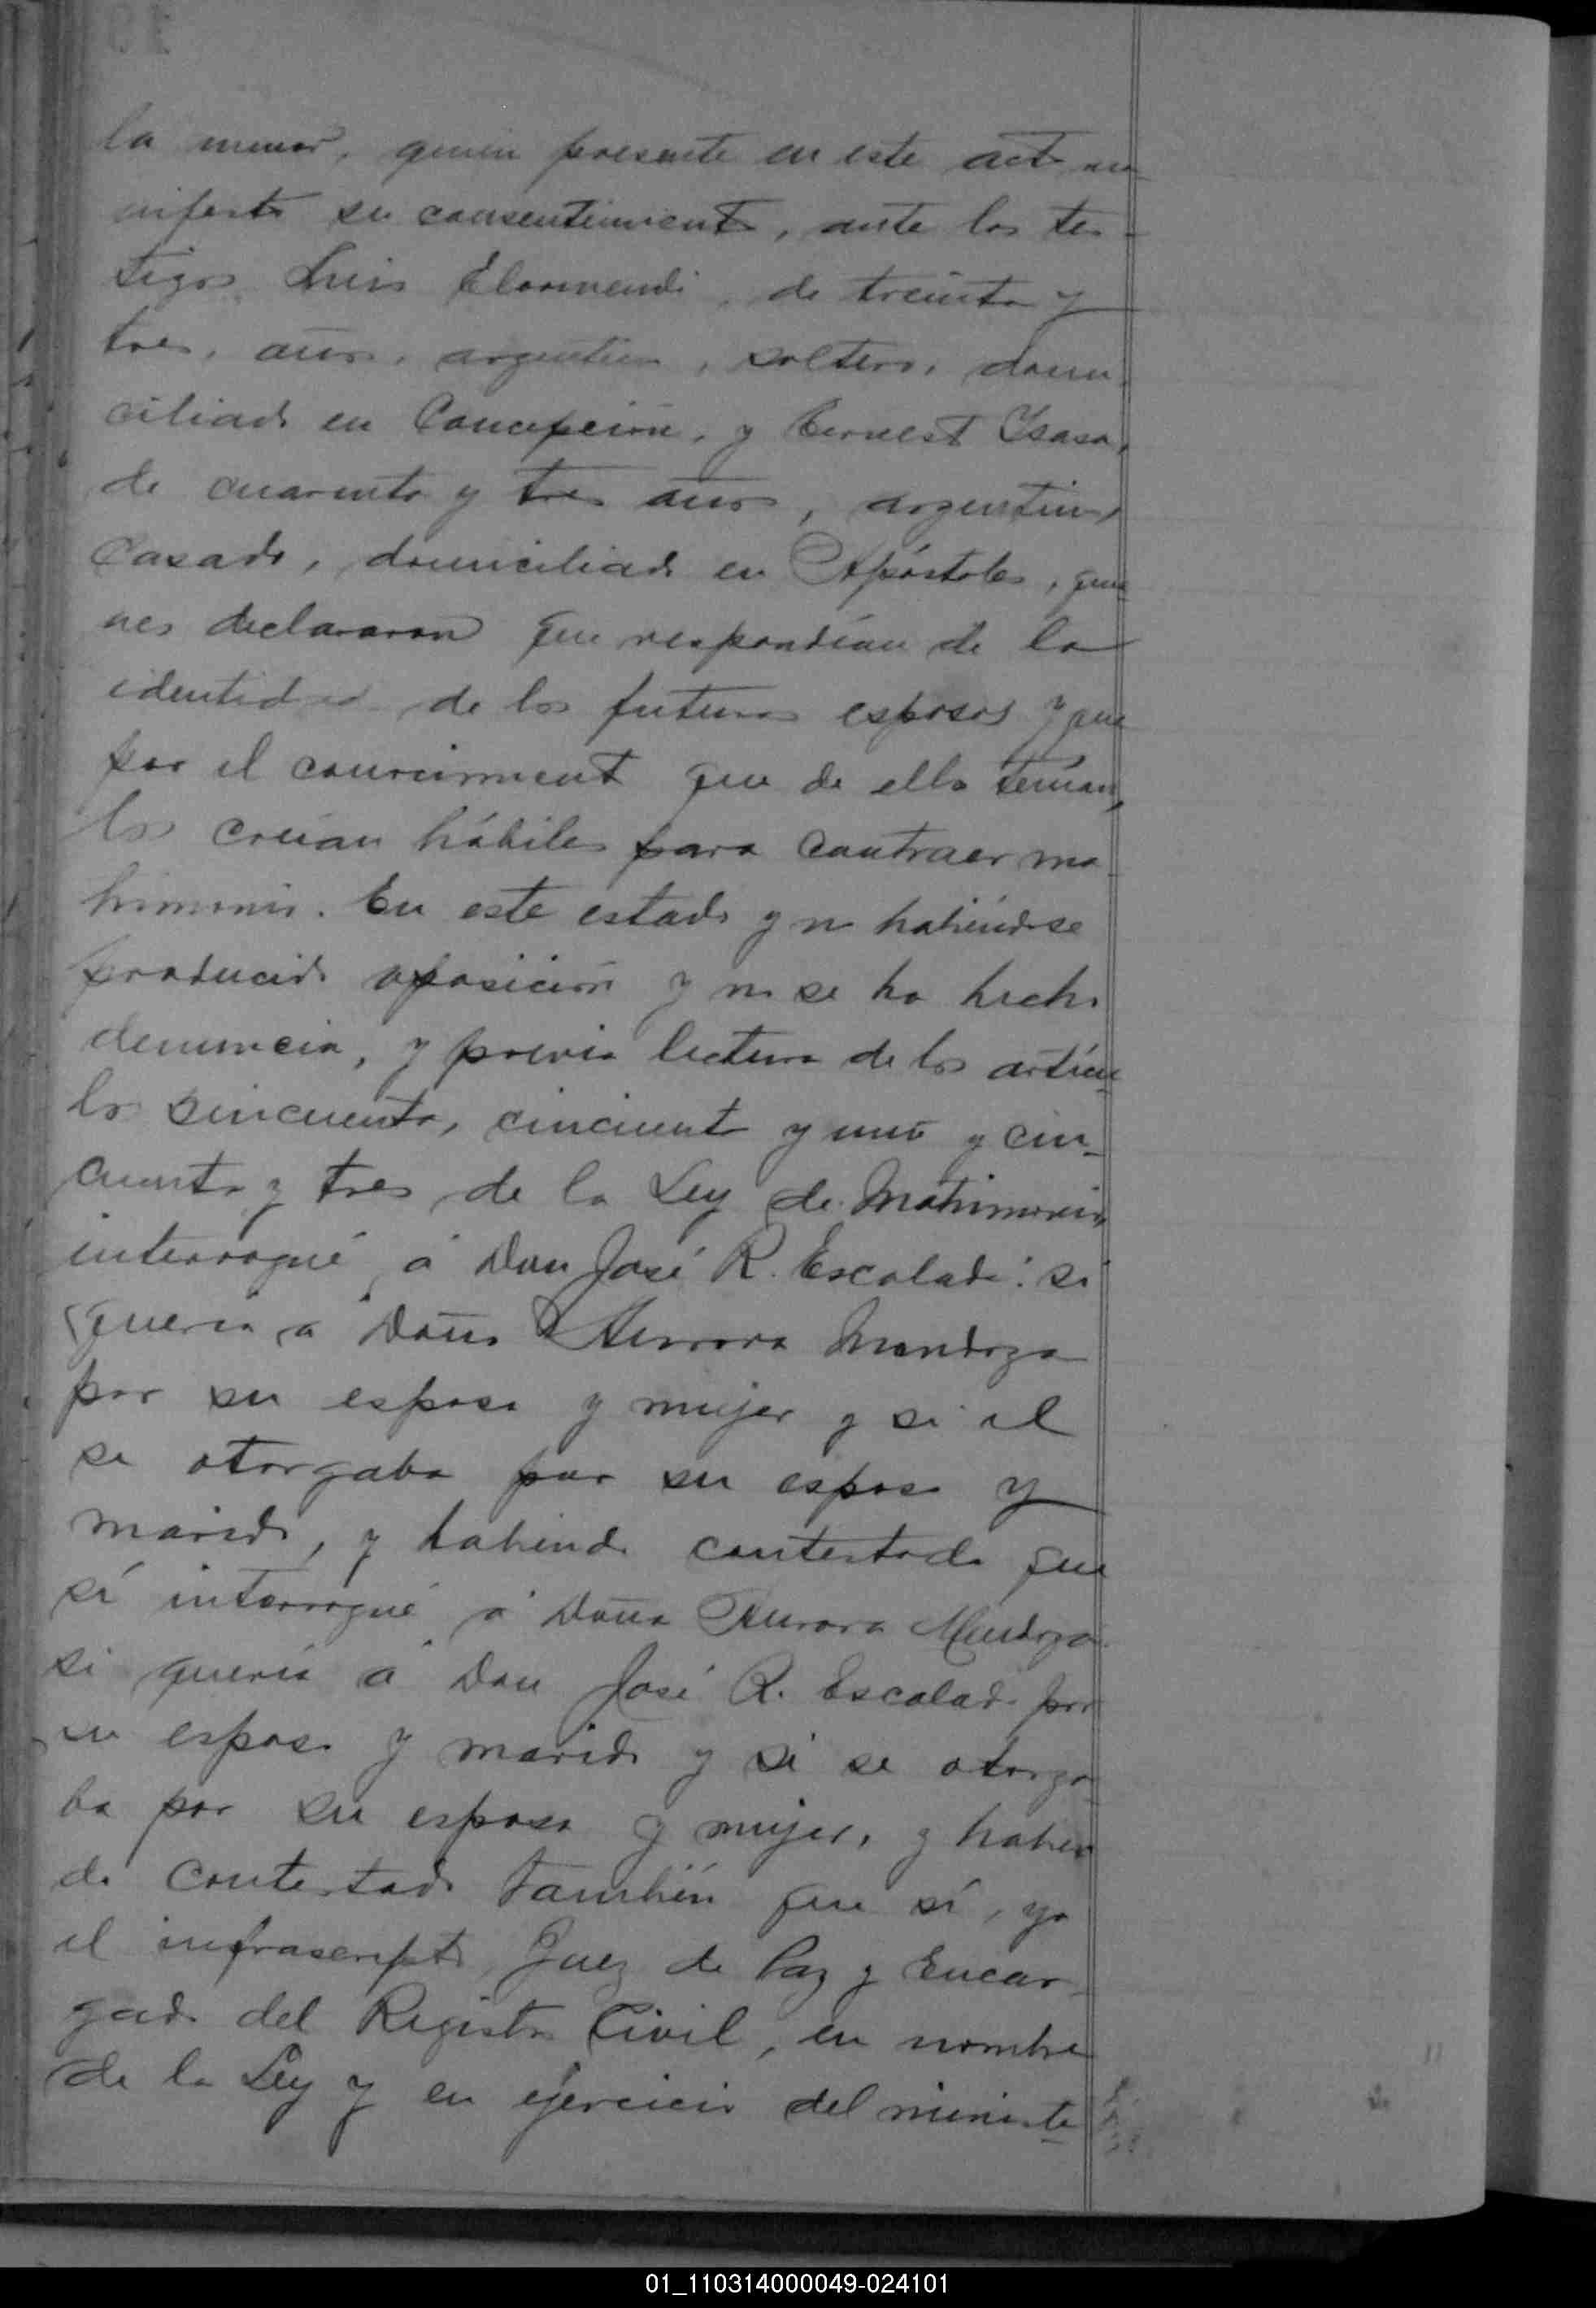 la menor, quien presente en este acto ma
nifestó su consentimiento, ante los tes-
tigos Luis Elormendi, de treinta y
tres, años, argentino, soltero, domi-
ciliado en Concepción, y Ernesto Ysasa,
de cuarenta y tres años, argentino,
Casado, domiciliado en Apóstoles, quie
nes declararon que respondían de la
identidad de los futuros esposos y que
por el conocimiento que de ellos tenían,
los creían hábiles para contraer ma-
trimonio. En este estado y no habiéndose
producido oposición y no se ha hecho
denuncia, y previa lectura de los artícu-
los sincuenta, cincuenta y uno y cin-
cuenta y tres de la Ley de Matrimonio,
interrogué á Don José R. Escalada: si
quería á Doña Aurora Mendoza
por su esposa y mujer y si él
se otorgaba por su esposo y
marido, y habiendo contestado que
sí interrogué á Doña Aurora Mendoza
si quería á Don José R. Escalada por
su esposo y marido y si se otorga-
ba por su esposa y mujer, y habien
do contestado también que sí, yo
el infrascripto Juez de Paz y Encar-
gado del Registro Civil, en nombre
de la Ley y en ejercicio del ministe-
01_110314000049-024101